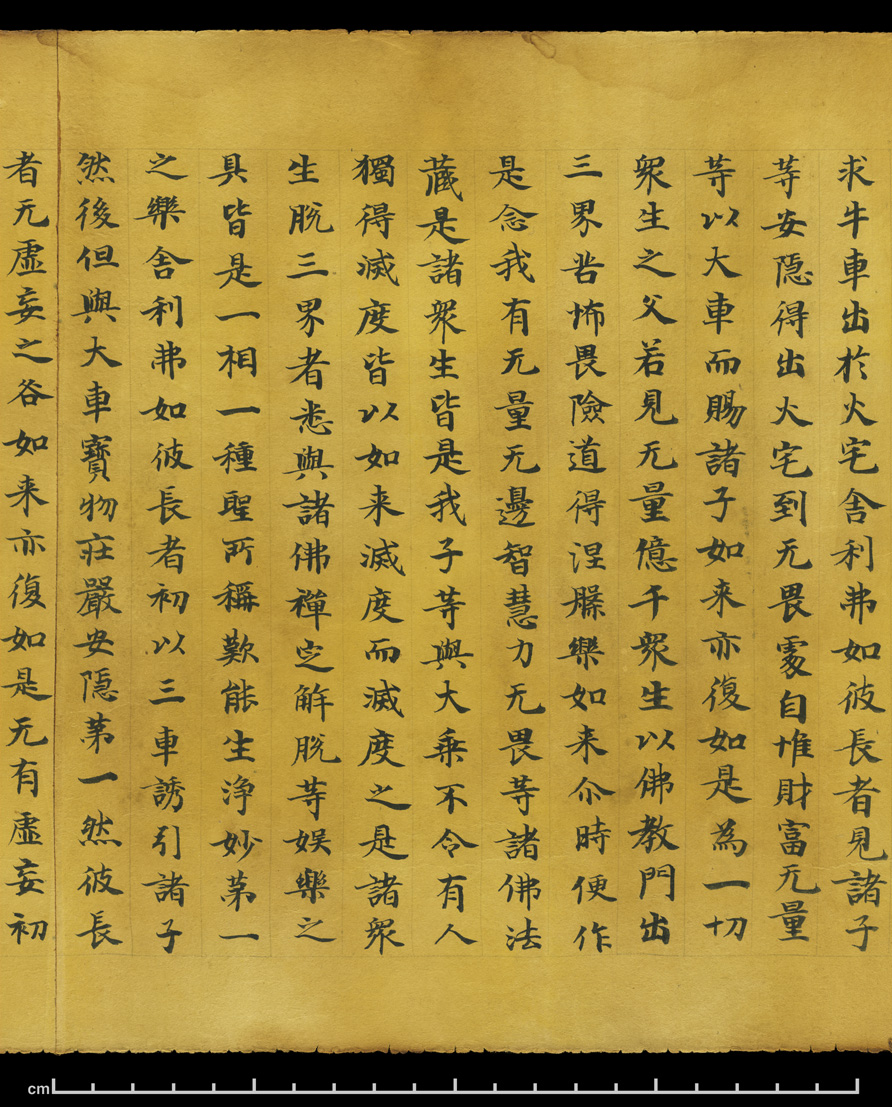 求牛車出於火宅舍利弗如彼長者見諸子
等安隱得出火宅到无畏處自惟財富无量
等以大車而賜諸子如来亦復如是為一切
衆生之父若見无量億千衆生以佛教門出
三界苦怖畏險道得涅膝樂如来尒時便作
是念我有无量无邊智慧力无畏等諸佛法
藏是諸衆生皆是我子等與大乗不令有人
獨得滅度皆以如来滅度而滅度之是諸衆
生脫三界者悉與諸佛禪定解脫等娱樂之
具皆是一相一種聖所稱歎能生淨妙苐一
之樂舍利弗如彼長者初以三車誘引諸子
然後但與大車寶物莊嚴安隱苐一然彼長
者无虛妄之咎如来亦復如是无有虛妄初
cm